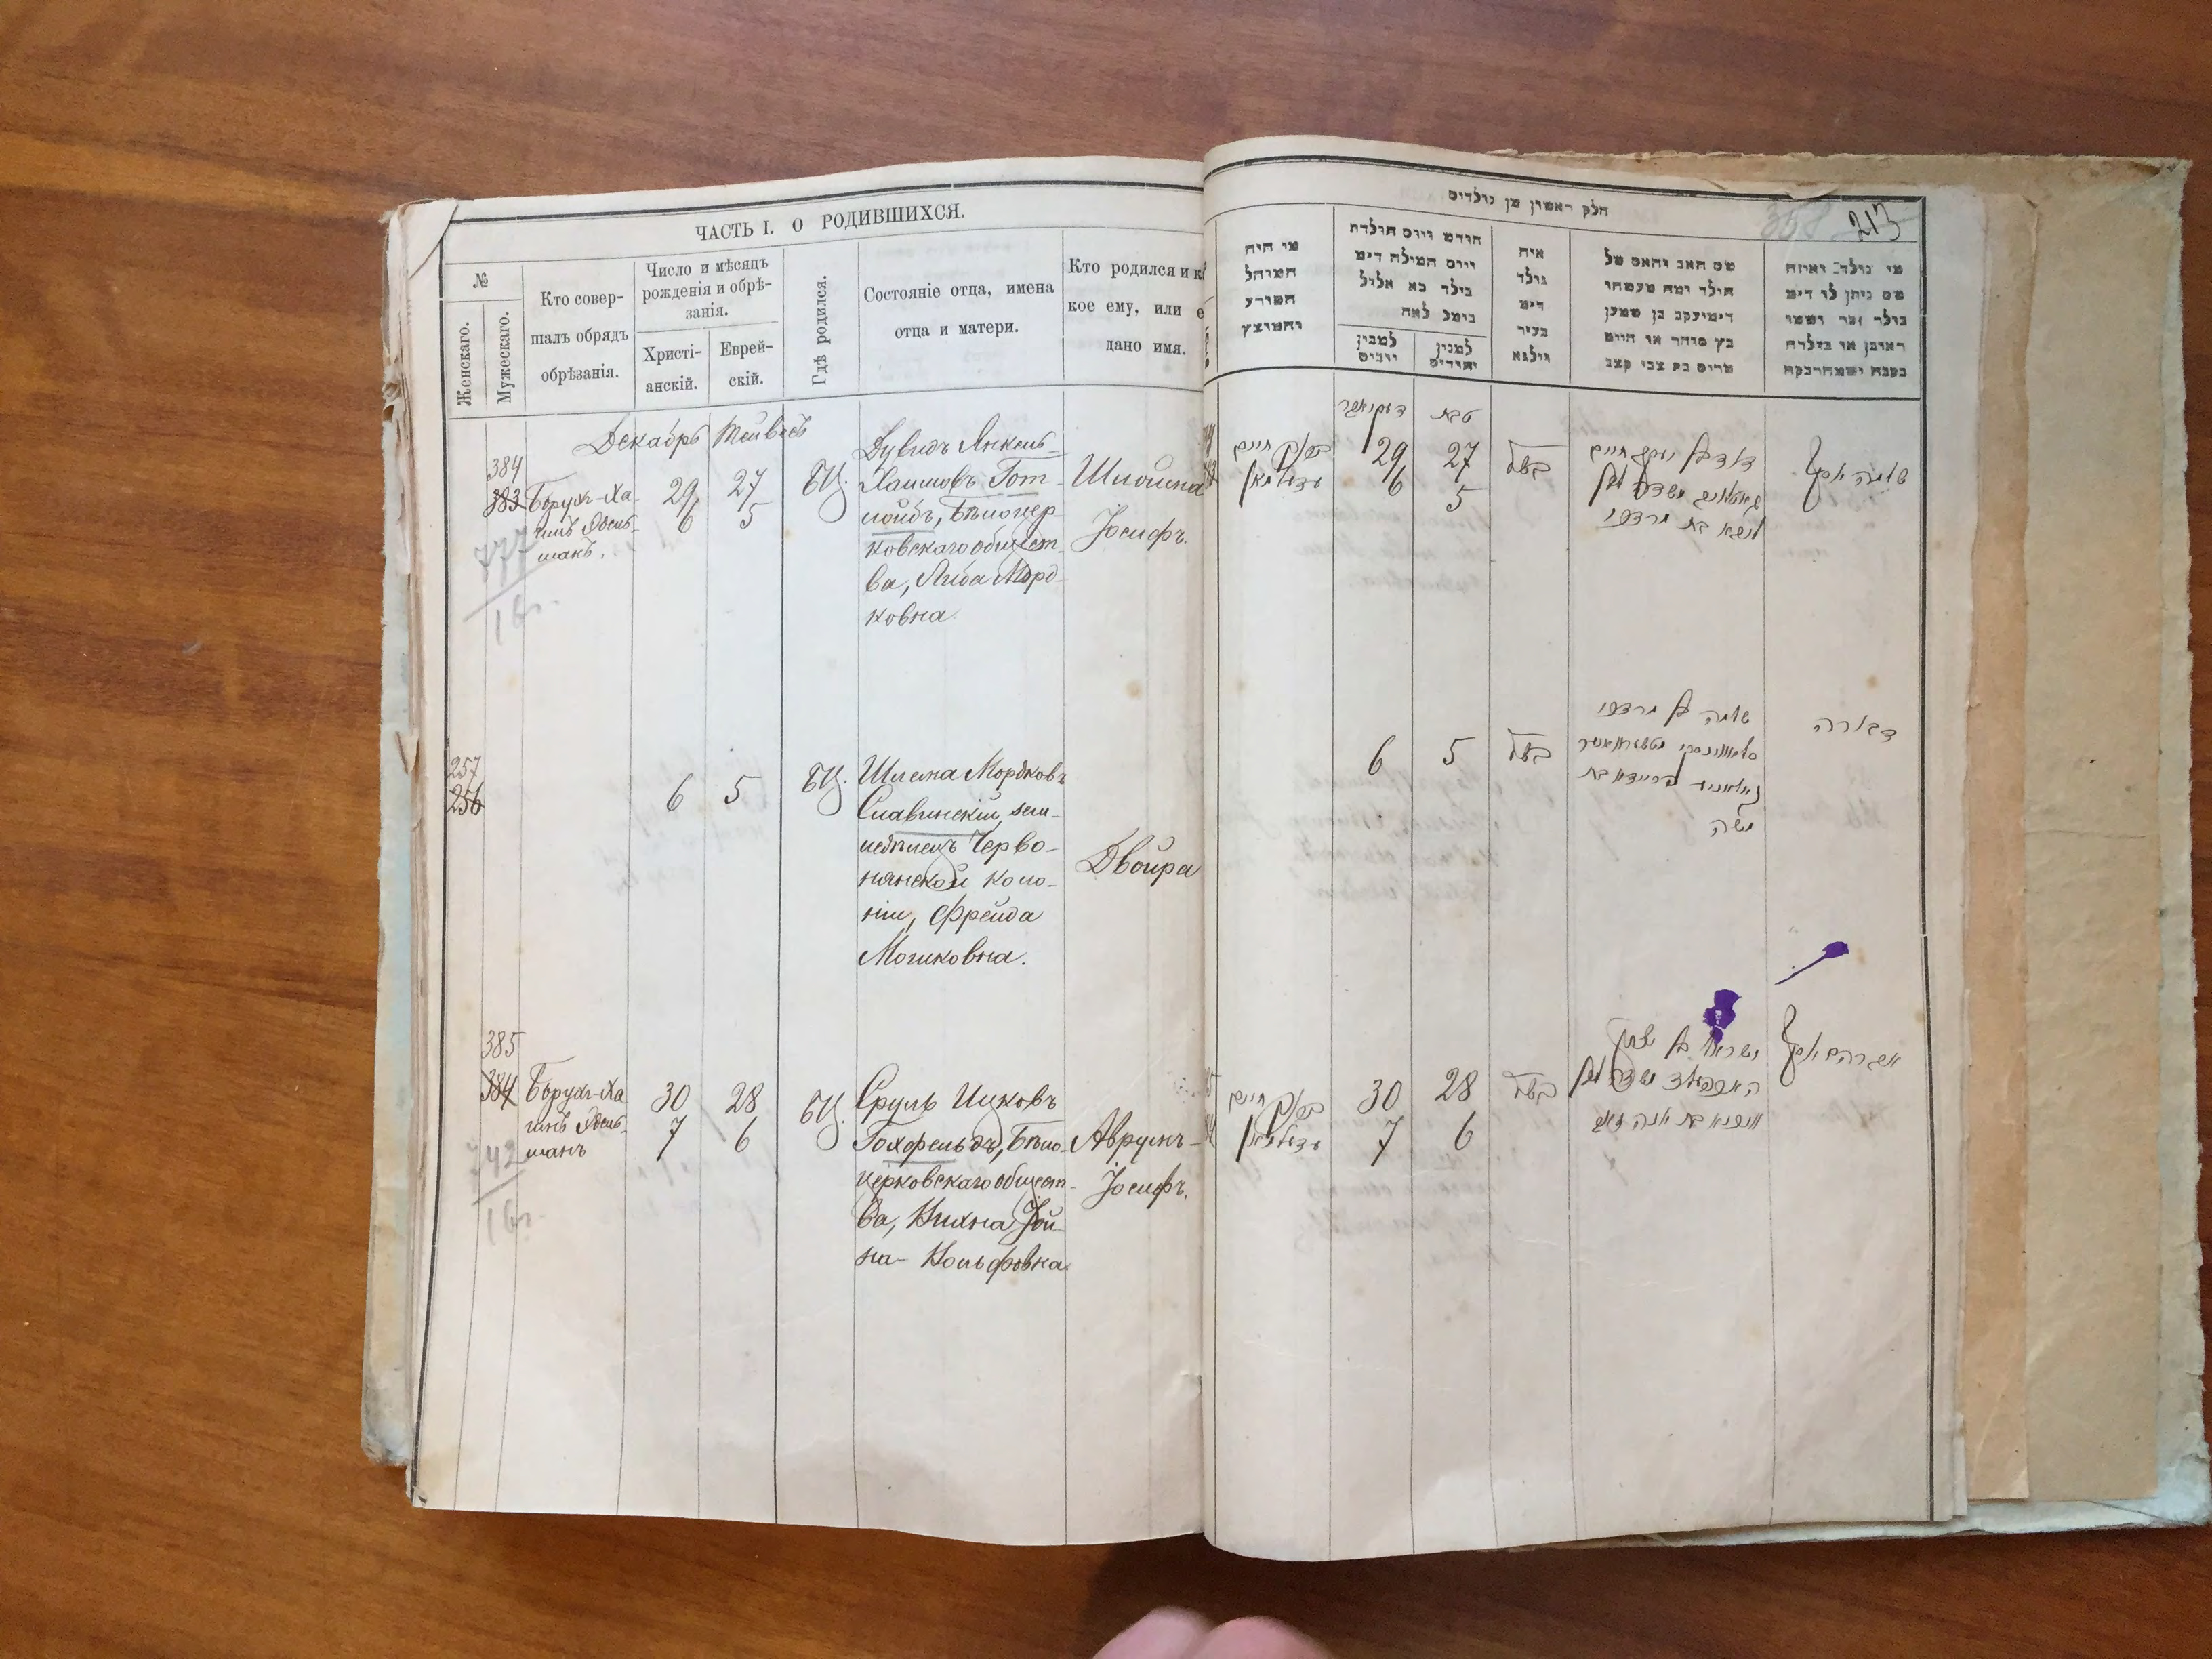 ЧАСТЬ I. О РОДИВШИХСЯ.
№
Женскаго.
Мужескаго.
Кто совер-
шалъ обрядъ
обрѣзанія.
Число и мѣсяцъ
рожденія и обрѣ-
занія.
Христі-
анскій.
Еврей-
скій.
Гдѣ родился.
Состояніе отца, имена
отца и матери.
Кто родился и ка
кое ему, или е
дано имя.
Декабрь Тейвесъ
384
383
Борухъ-Ха-
имъ Эдель-
манъ.
29 27
6 5
БЦ.
Дувидъ Янкель-
Хаимовъ Гот-
лойбъ, Бѣлоцер-
ковскаго общест-
ва, Либа Морд-
ковна.
Шлойма
Іосифъ.
777
16г.
257
256
6 5
БЦ.
Шлема Мордковъ
Славинскій, зем-
ледѣлецъ Черво-
нянской коло-
ніи, Фрейда
Мошковна.
Двойра
385
384
Борухъ-Ха
имъ Эдель-
манъ
30 28
7 6
БЦ.
Сруль Ицковъ
Гохфельдъ, Бѣло-
церковскаго общест-
ва, Хихна Хай-
на-Вольфовна.
Аврумъ-
Іосифъ.
742
16г.
חלק ראשון מן נולדים
213
מי היה
המוהל
הפורע
והמוצץ
חודש ויום הולדת
ויום המילה דימ
נילד בא אלול
נימל לאה
למנין
יוניס
למנין
יהודיס
איה
נולד
דימ
בעיר
ווילנא
שם האב והאם של
הילד ומה מעשהו
דימיעקב בן שמען
בץ סוחר או חיים
מרים בת צבי קצב
מי נולד ואיזה
שם ניתן לו דימ
נולד זכר ושמו
ראובן או נולדה
נקבה ושמה רבקה
דעקאבר
טבת
ברוך חיים
עדעלמאן
29 27
6 5
דוד בן יעקב חיים
ליבא בת מרדכי
שלמה יוסף
6 5
שלמה בן מרדכי
פריידא בת
משה
דבורה
ברוך חיים
עדעלמאן
30 28
7 6
ישראל בן יצחק
אברהם יוסף